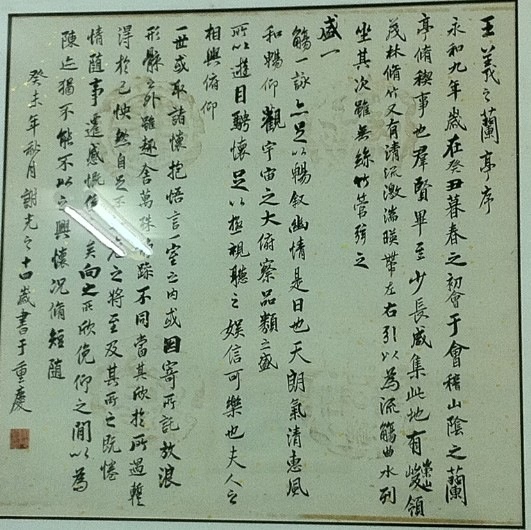 王羲之蘭亭序
永和九年歲在癸丑暮春之初會于會稽山陰之蘭
亭脩稧事也群賢畢至少長咸集此地有崇山峻領
茂林脩竹又有清流激湍暎帶左右引以為流觴曲水列
坐其次雖無絲竹管弦之
盛一
觴一詠亦足以暢敘幽情是日也天朗氣清惠風
和暢仰觀宇宙之大俯察品類之盛
所以遊目騁懷足以極視聽之娛信可樂也夫人之
相與俯仰
一世或取諸懷抱悟言一室之內或因寄所託放浪
形骸之外雖趣舍萬殊躁不同當其欣於所遇蹔
得於己怏然自足不之將至及其所之既惓
情隨事遷感慨矣向之所欣俛仰之閒以為
陳迹猶不能不以之興懷況脩短隨
癸未年秋月謝光之十四歲書于重慶